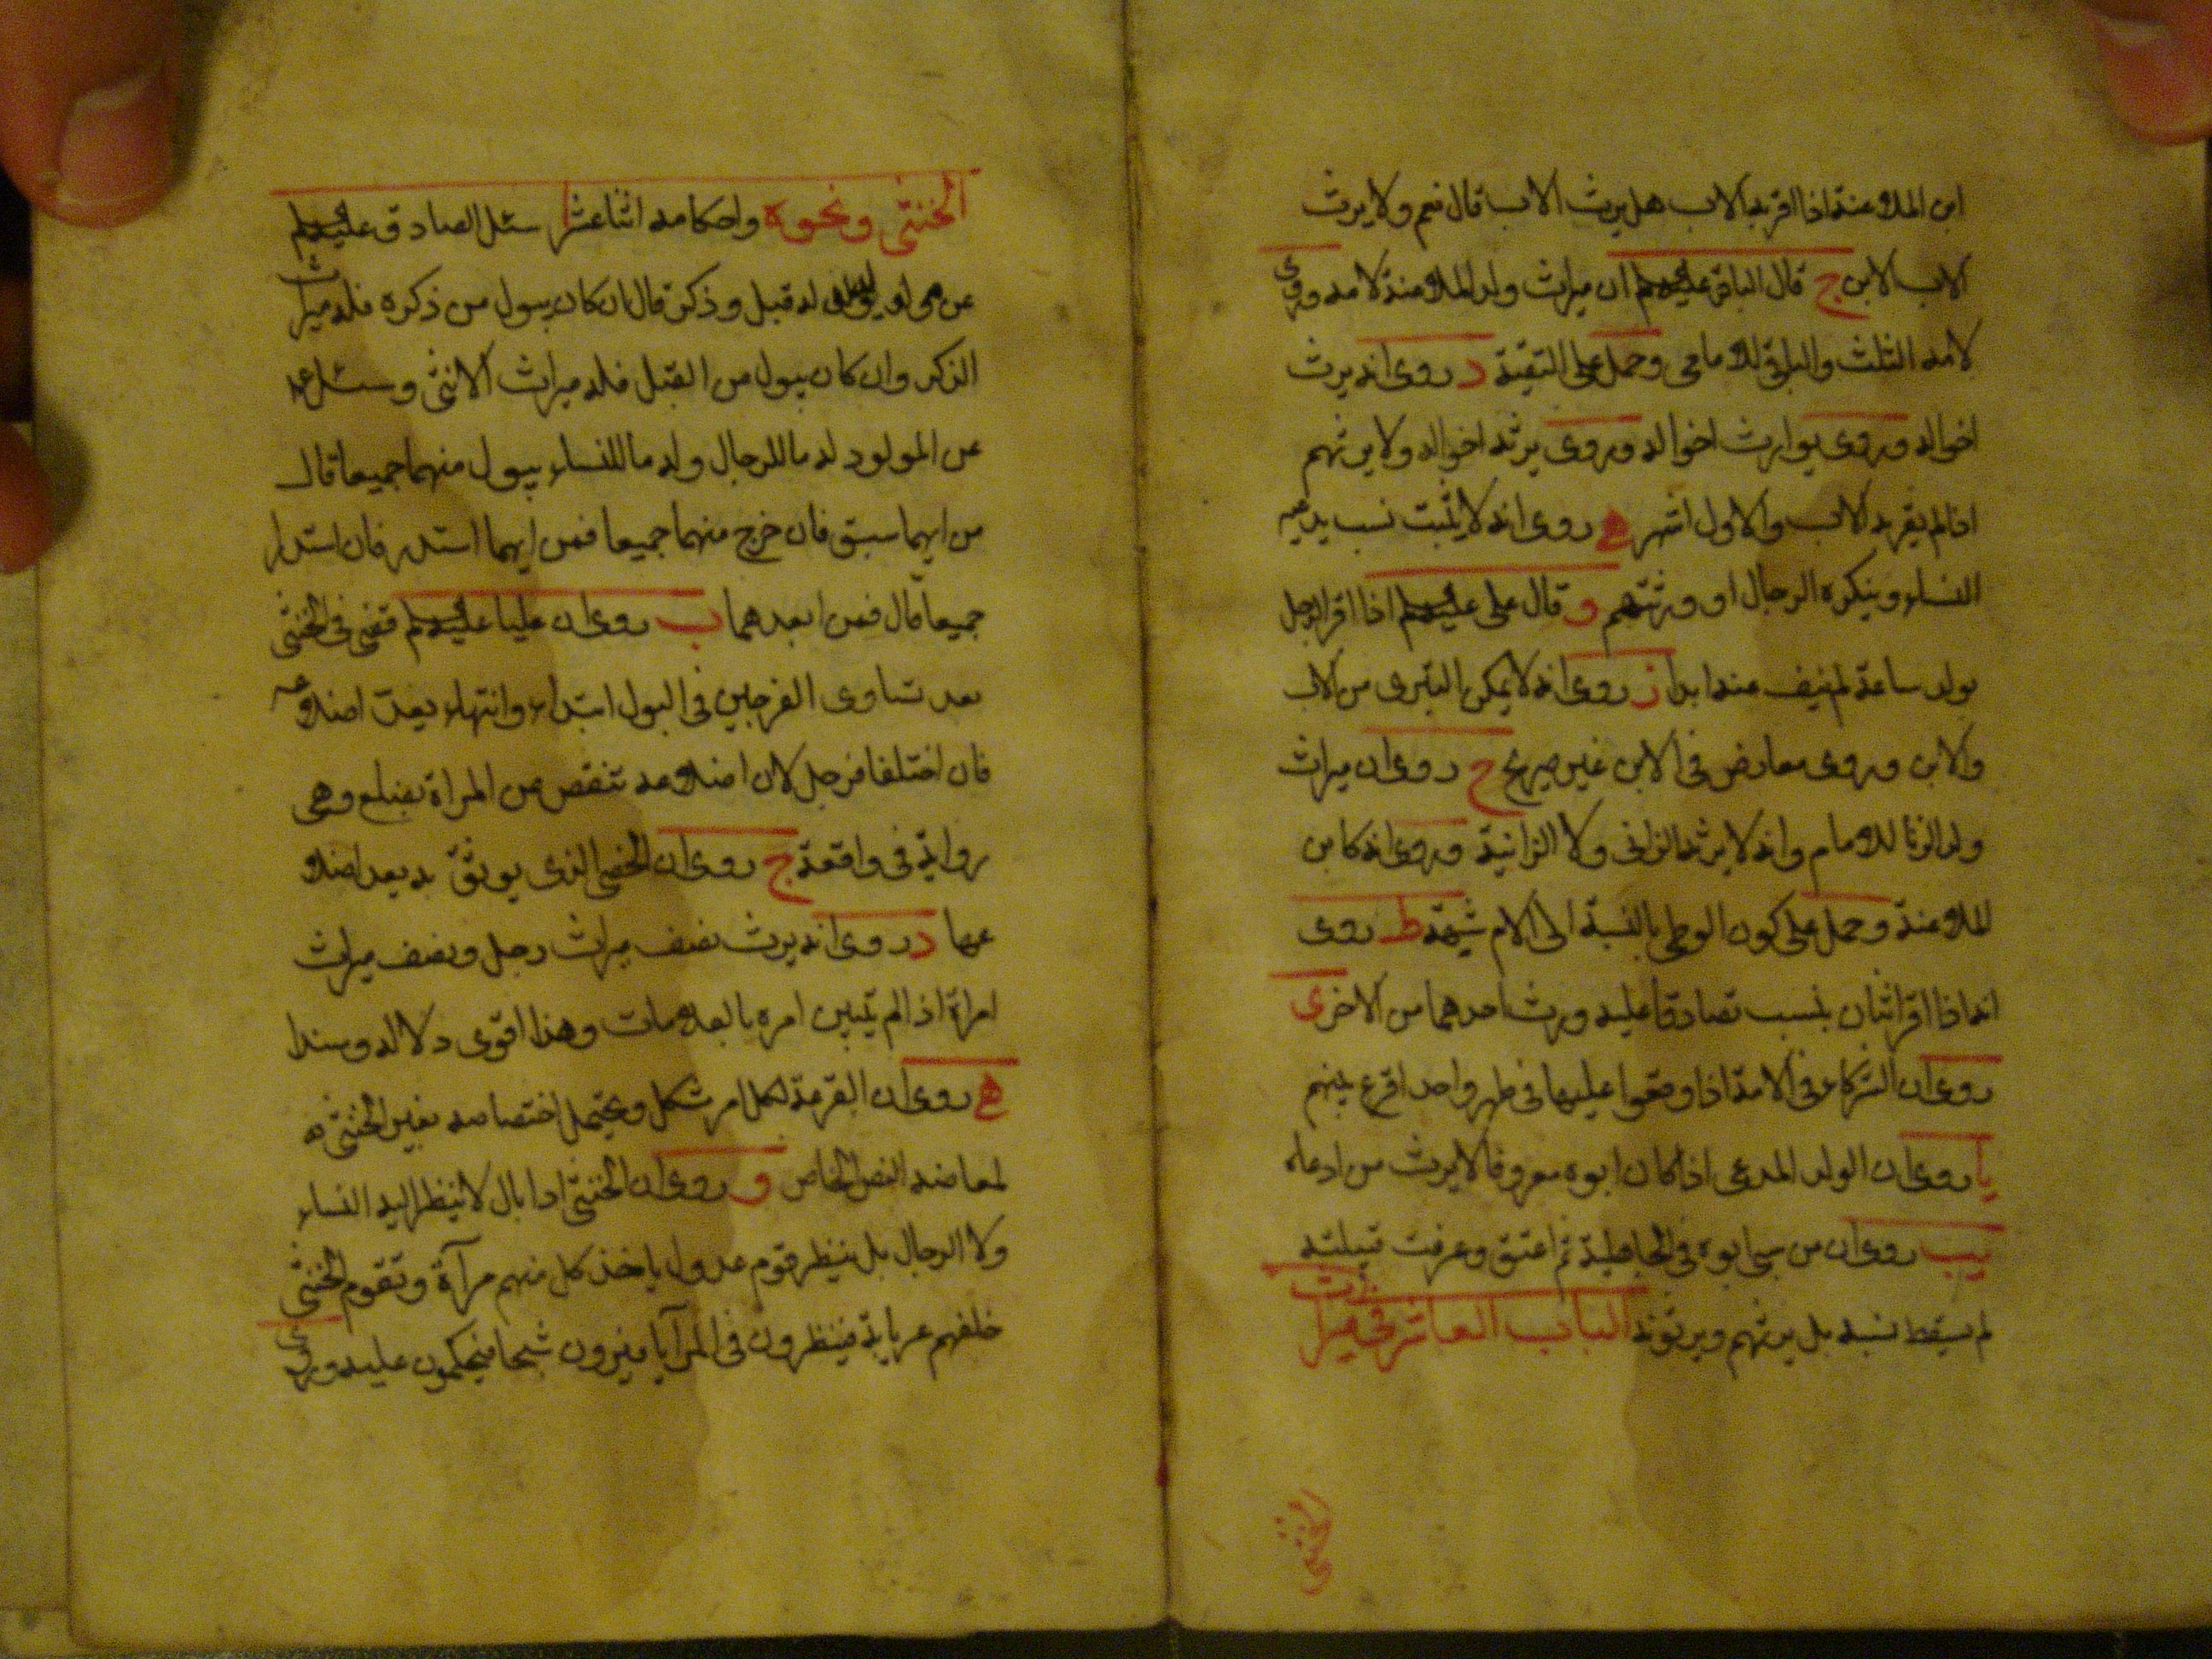 ابن الملاعنة اذا اقر به الاب هل يرث الاب قال نعم ولا يرث
الاب الابن ج قال الباقر عليه السلم ان ميراث ولد الملاعنة لامه وروى
لامه الثلث والباقى للامام وحمل على التقية د روى انه يرث
اخواله وروى يوارث اخواله وروى يرثه اخواله ولا يرثهم
اذا لم يقر به الاب والاول اشهر ه روى انه لا يثبت نسب يدعيه
النساء وينكره الرجال او ورثتهم و قال على عليه السلم اذا اقر الرجل
بولد ساعة لم ينف عنه ابدا ز روى انه لا يمكن التبرى من الاب
والابن وروى معارض فى الابن غير صريح ح روى ان ميراث
ولد الزنا للامام وانه لا يرثه الزانى ولا الزانية وروى انه كابن
الملاعنة وحمل على كون الوطى بالنسبة الى الام شبهة ط روى
انه اذا اقر اثنان بنسب تصادقا عليه ورث احدهما من الاخر ى
روى ان الشركاء فى الامة اذا وقعوا عليها فى طهر واحد اقرع بينهم
يا روى ان الولد المدعى اذا كان ابوه معروفا لا يرث من ادعاه
يب روى ان من سبى ابوه فى الجاهلية ثم اعتق وعرفت قبيلته
لم يسقط نسبه بل يرثهم ويرثونه الباب العاشر فى ميراث
الخنثى
الخنثى ونحوه واحكامه اثنا عشر ا سئل الصادق عليه السلم
عن مولود له قبل وذكر قال ان كان يبول من ذكره فله ميراث
الذكر وان كان يبول من القبل فله ميراث الانثى وسئل ع
عن المولود له ما للرجال وله ما للنساء يبول منهما جميعا قال
من ايهما سبق فان خرج منهما جميعا فمن ايهما استدر فان استدرا
جميعا قال فمن ابعدهما ب روى ان عليا عليه السلم قضى فى الخنثى
بعد تساوى الفرجين فى البول ابتداء وانتهاء بعدّ اضلاعه
فان اختلفا فرجل لان اضلاعه تنقص عن المراة بضلع وهى
رواية فى واقعة ج روى ان الخصى الذى يوثق به يعد اضلا
عها د روى انه يرث نصف ميراث رجل ونصف ميراث
امراة اذا لم يتبين امره بالعلامات وهذا اقوى دلالة وسندا
ه روى ان القرعة لكل امر مشكل ويحتمل اختصاصه بغير الخنثى
لمعارضه النص الخاص و روى ان الخنثى اذا بال لا ينظر اليه النساء
ولا الرجال بل ينظر قوم عدول ياخذ كل منهم مرآة وتقوم الخنثى
خلفهم عريانة فينظرون فى المرآيا فيرون شبحا فيحكمون عليه وروى